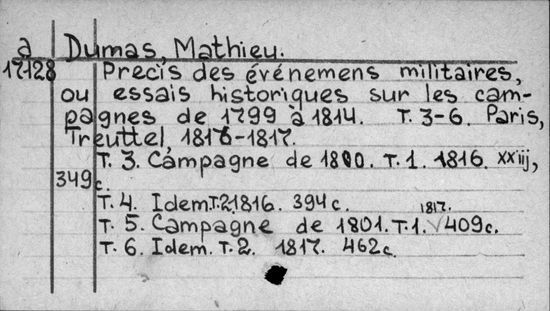 а Dumas, Mathieu.
17128 Precis des événemens militaires,
ou essais historiques sur les cam-
pagnes de 1799 à 1814. T. 3-6. Paris,
Treuttel, 1816-1817.
T. 3. Campagne de 1800. T. 1. 1816. xxiij,
349 c.
T. 4. Idem. T. 2. 1816. 394 c.
1817.
T. 5. Campagne de 1801. T. 1. √ 409 c.
T. 6. Idem. T. 2. 1817. 462 c.